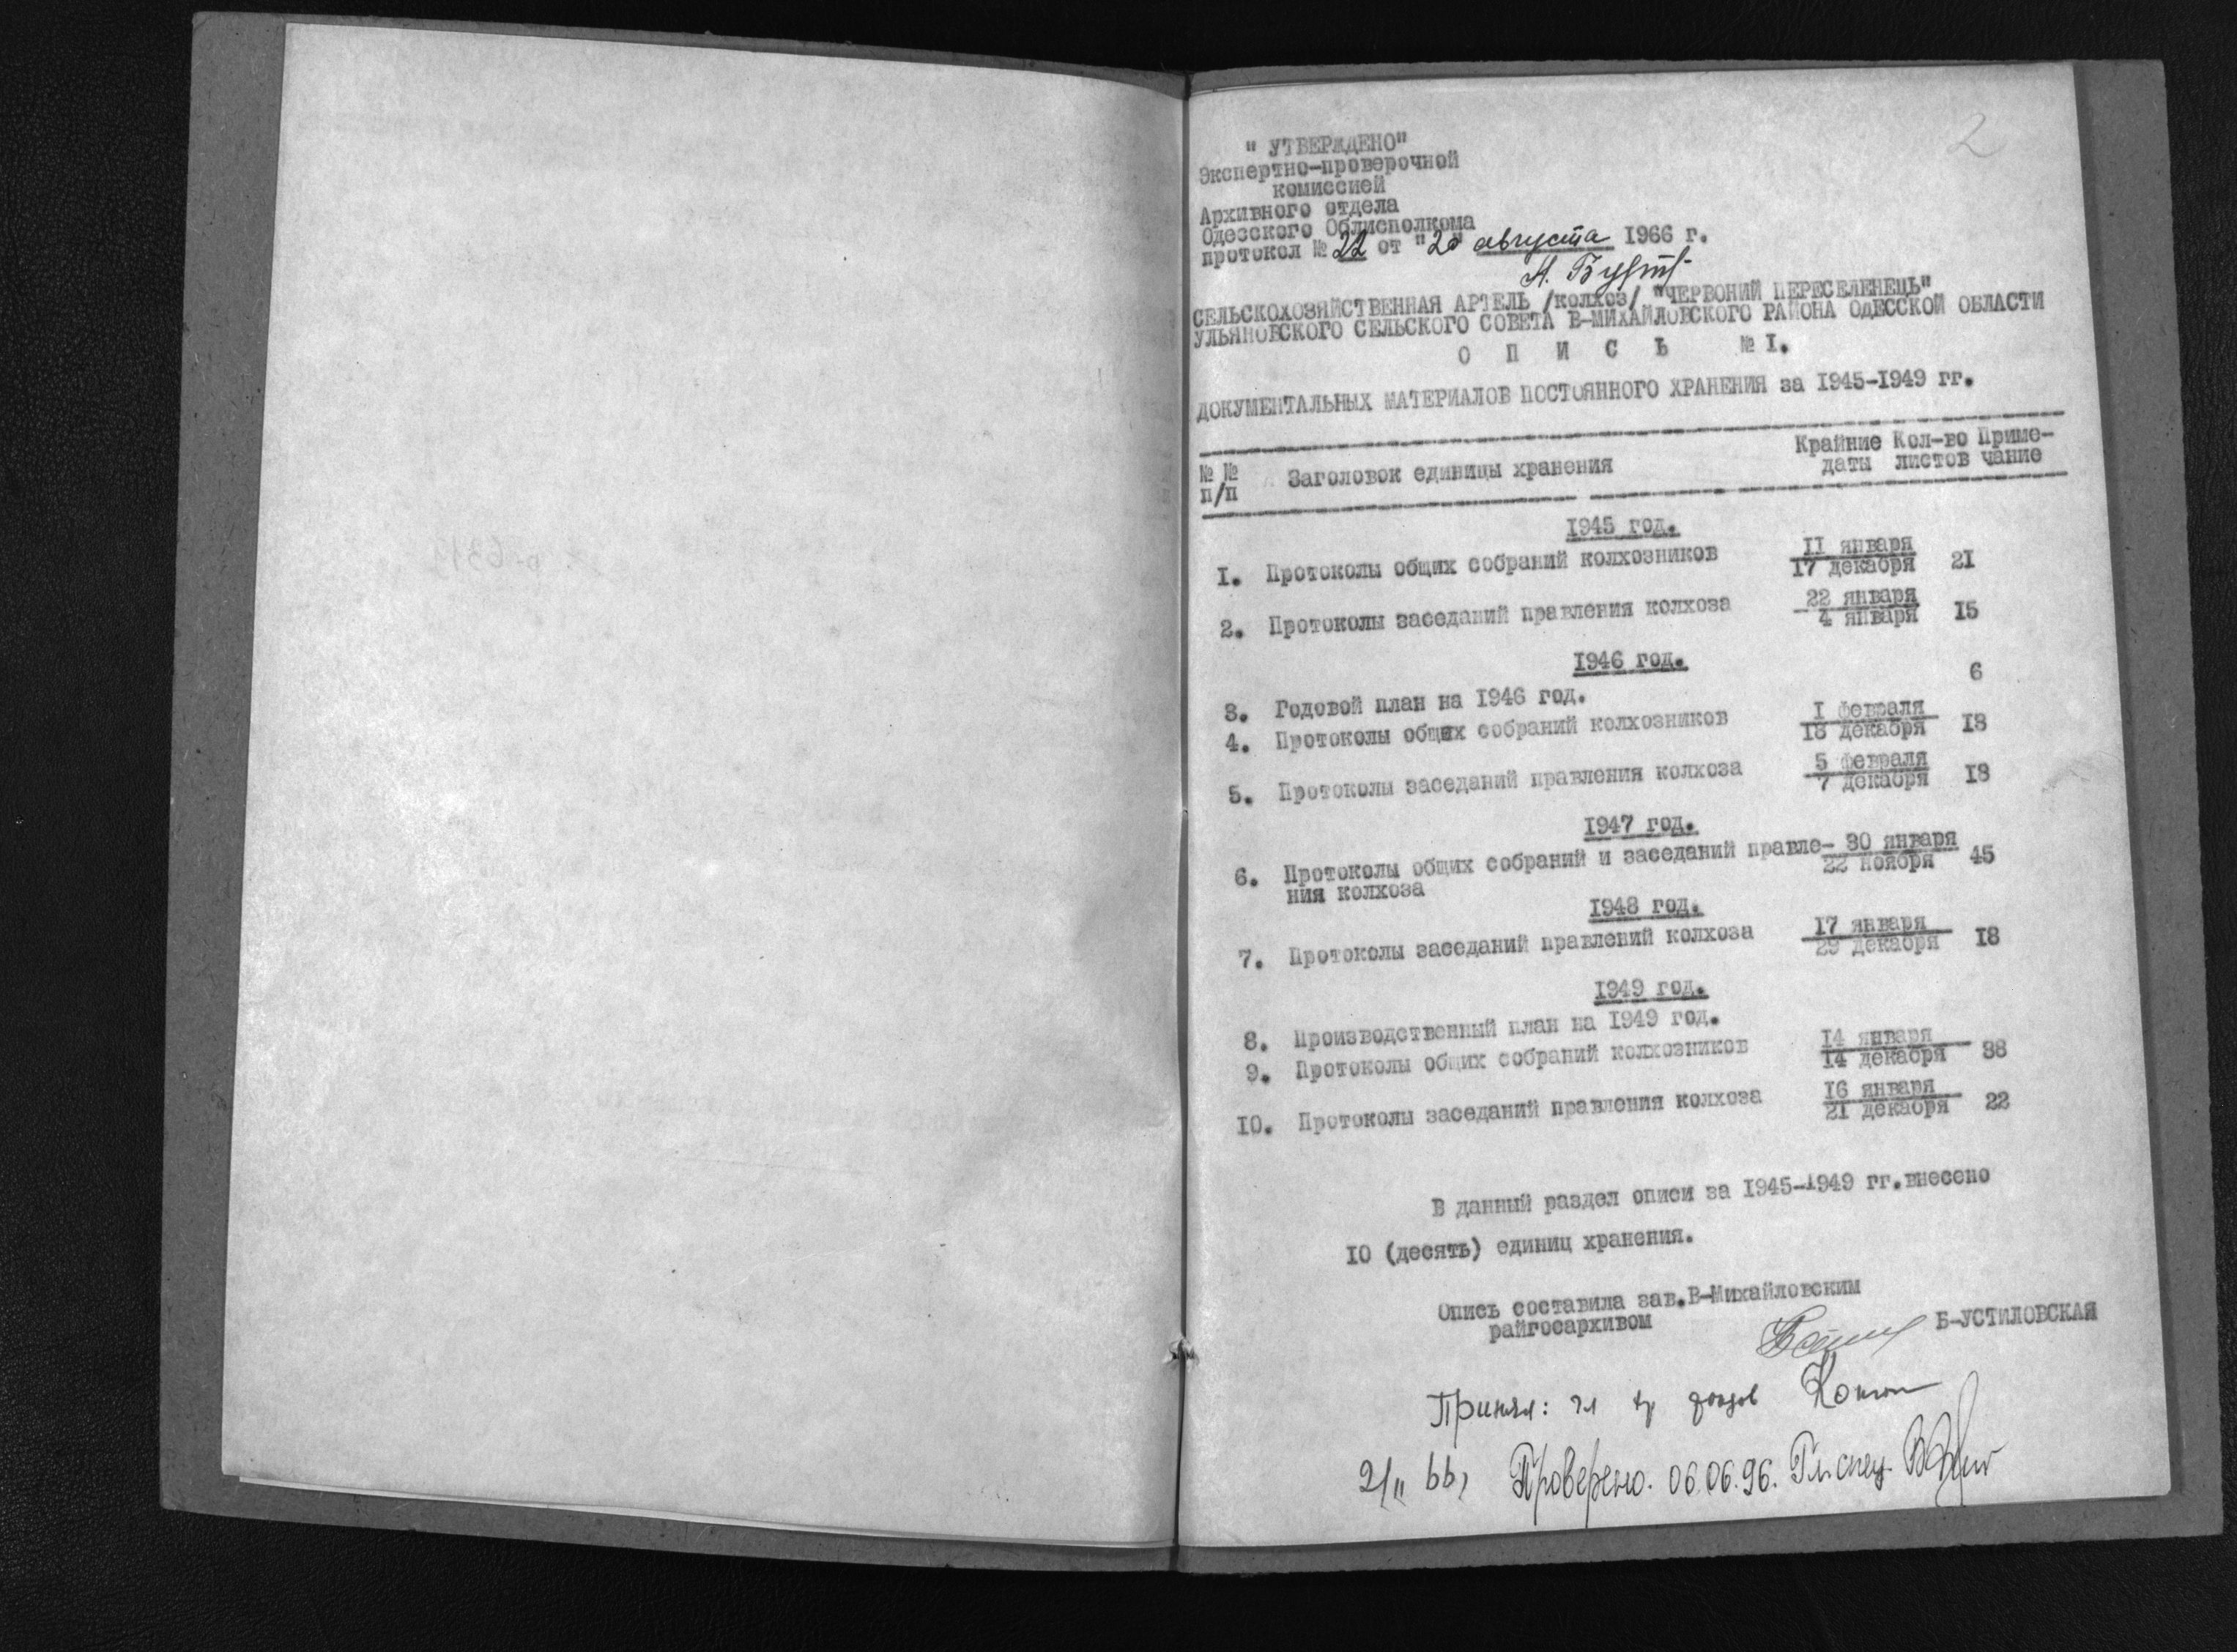 2
" УТВЕРЖДЕНО"
Экспертно-проверочной
комиссией
Архивного отдела
Одесского Облисполкома
протокол № 22 от "20" августа 1966 г.
СЕЛЬСКОХОЗЯЙСТВЕННАЯ АРТЕЛЬ /колхоз/ "ЧЕРВОНИЙ ПЕРЕСЕЛЕНЕЦЬ"
УЛЬЯНОВСКОГО СЕЛЬСКОГО СОВЕТА В-МИХАЙЛОВСКОГО РАЙОНА ОдЕССКОЙ ОБЛАСТИ
О П И С Ь № I.
ДОКУМЕНТАЛЬНЫХ МАТЕРИАЛОВ ПОСТОЯННОГО ХРАНЕНИЯ за 1945-1949 гг.
№ № Заголовок единицы хранения Крайние Кол-во Приме-
п/п даты листов чание
1945 год.
I. Протоколы общих собраний колхозников II января 21
17 декабря
2. Протоколы заседаний правления колхоза 22 января 15
4 января
1946 год.
3. Годовой план на 1946 год. 6
4. Протоколы общих собраний колхозников I февраля 18
18 декабря
5. Протоколы заседаний правления колхоза 5 февраля 18
7 декабря
1947 год.
6. Протоколы общих собраний и заседаний правле- 30 января 45
ния колхоза 22 ноября
1948 год.
7. Протоколы заседаний правлений колхоза 17 января 18
29 декабря
1949 год.
8. Производственный план на 1949 год.
9. Протоколы общих собраний колхозников 14 января 38
14 декабря
10. Протоколы заседаний правления колхоза 16 января 22
21 декабря
В данный раздел описи за 1945-1949 гг.внесено
10 (десять) единиц хранения.
Опись составила зав.В-Михайловским
райгосархивом Б-УСТИЛОВСКАЯ
Принял: фондов
Проверено. 06.06.96. Гл. спец.